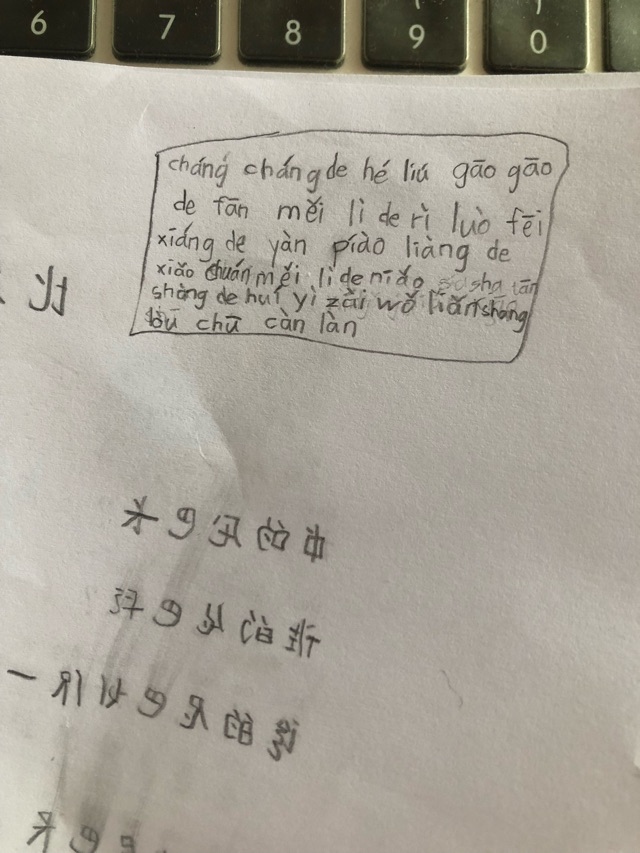 6 7 8 9 0
cháng cháng de hé liú gāo gāo
de fān měi lì de rì luò fēi
xiáng de yàn piào liàng de
xiǎo chuán měi lì de niǎo sha tān
shàng de huí yì zài wǒ liǎn shang
chū càn làn
比
的尾巴长
谁的尾巴
的尾巴好像一
巴